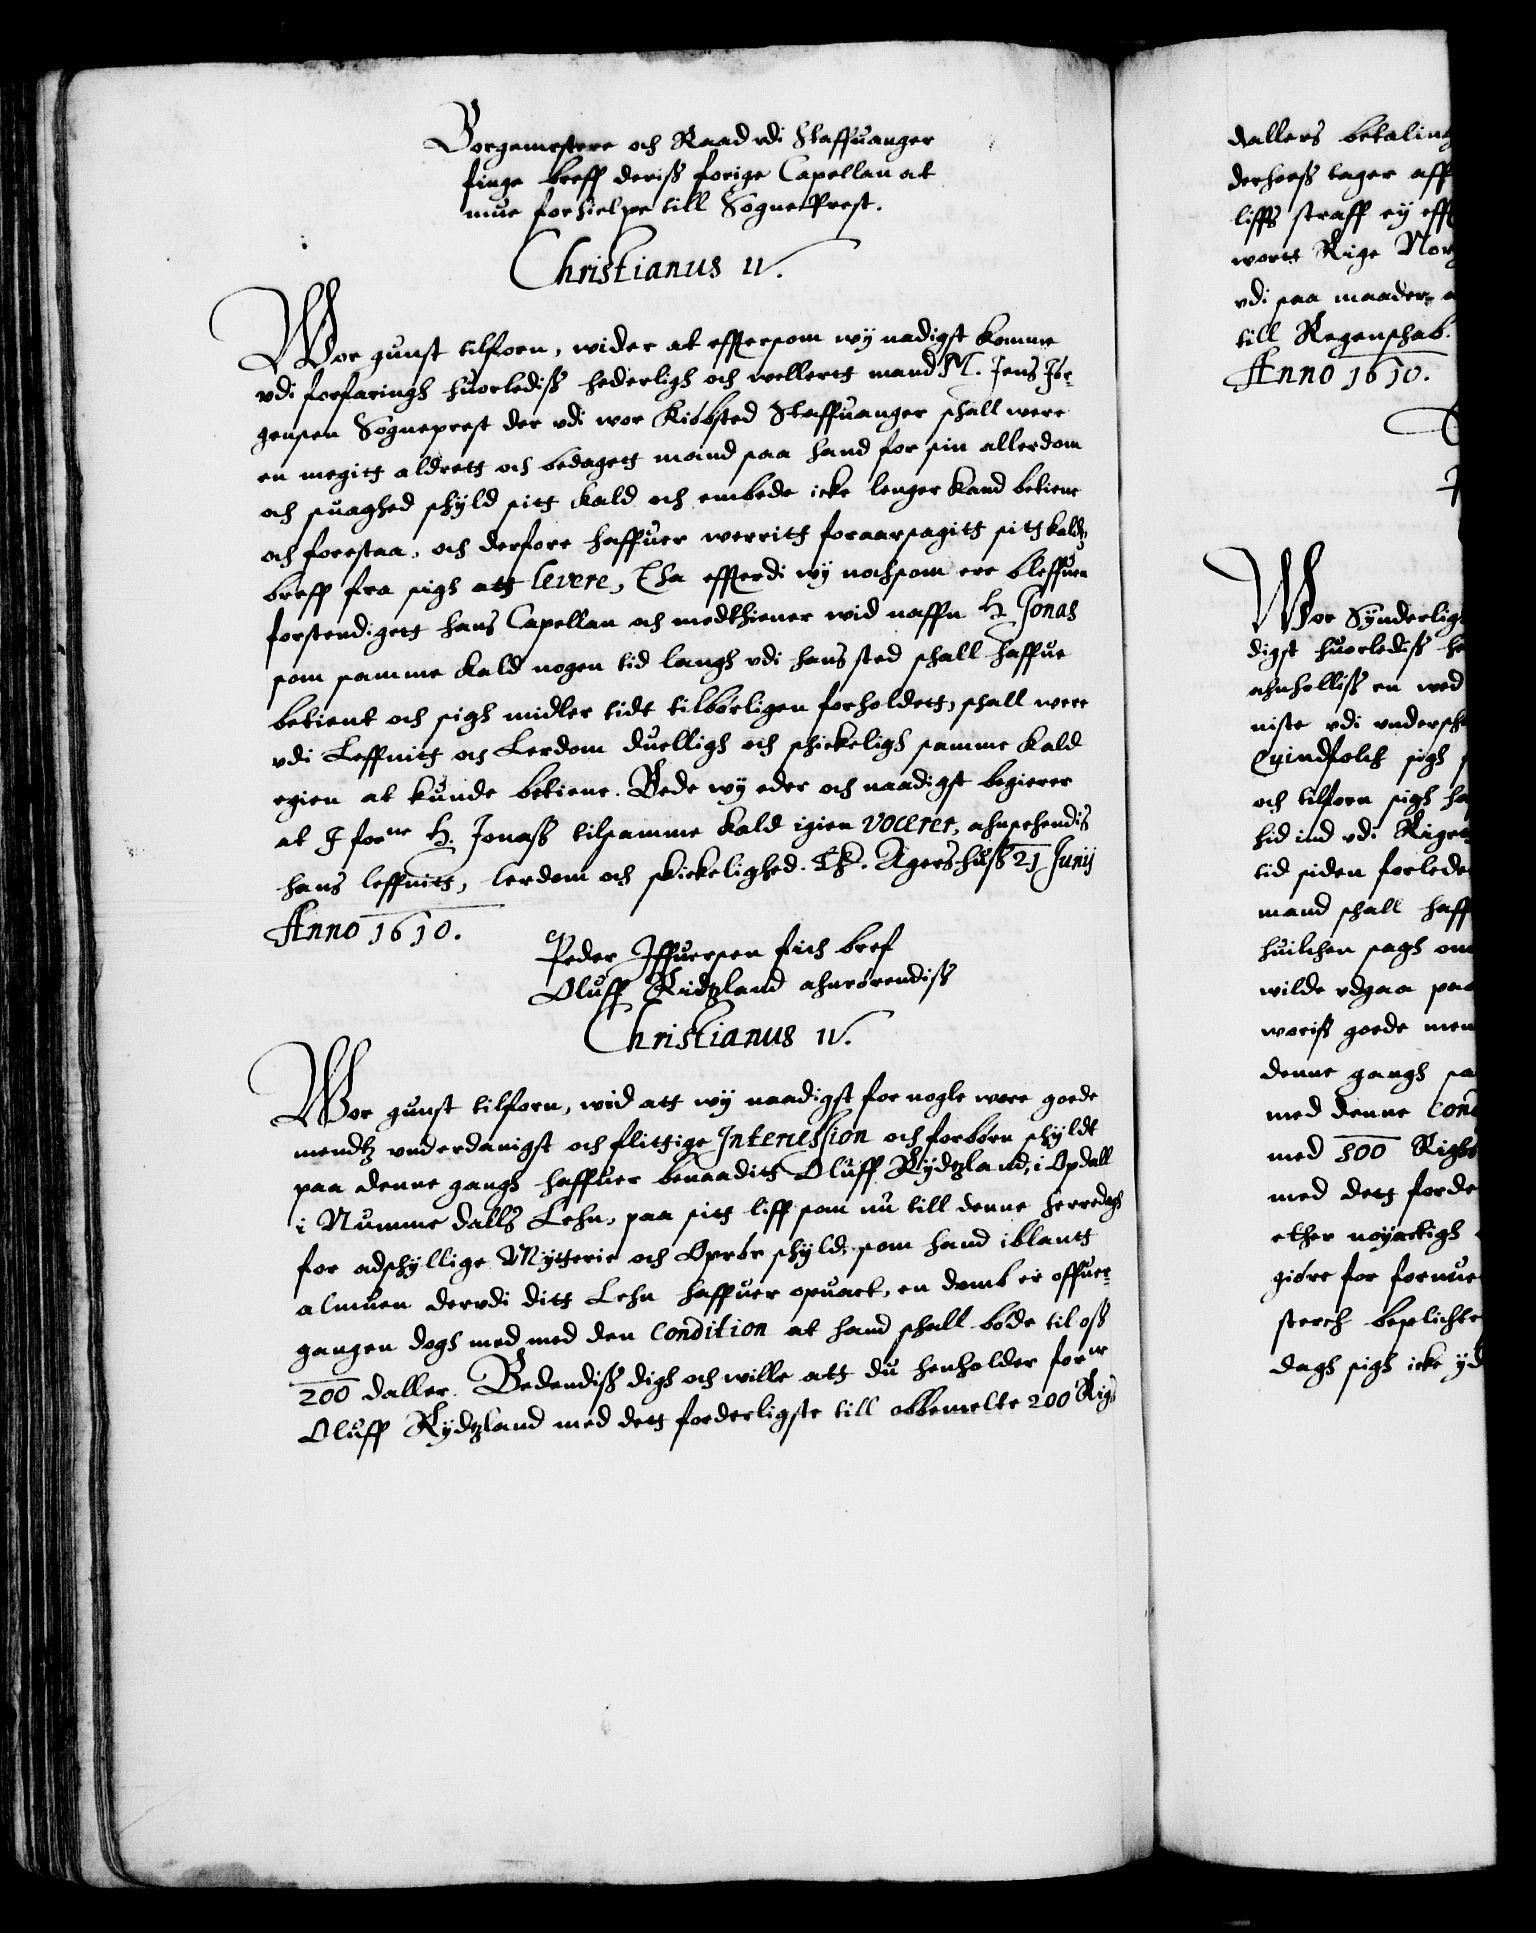 Borgemestere och Raad vdi Staffuanger
finge breff deriß forige Capellan at
mue forhielpe till SognePrest.
Christianus IV.
Wor gunst tilforn, wider at efftersom wÿ nadigst komme
vdi forfaringh huorlediß hederligh och wellertt mand M. Jens Jør-
gensen Sogneprest der vdi wor Kiøbsted Staffuanger schall were
en megitt aldrett och bedagett mand saa hand for sin allerdom
och suaghed schÿld sitt kald och embede icke lenger kand betiene
och forestaa, och derfore haffuer werritt foraarsagitt sitt kaldtz
breff fra sigh att levere, Tha effterdi wÿ nochsom ere bleffuen
forstendigett hans Capellan och medthiener wid naffn H. Jonas
som samme kald nogen tid langh vdi hans sted schall haffue
betient och sigh midler tidt tilbørligen forholdett, schall were
vdi Leffnitt och Lerdom duelligh och schickeligh samme kald
egien at kunde betiene. Bede wÿ eder och naadigst begierer
at I forne H. Jonaß tilsamme kald igien vocerer, ahnsehendis
hans leffnitt, lerdom och skickelighed. Th. Agershuß 21 Junij
Anno 1610.
Peder Iffuersen fich bref
Oluff Ridtzland ahnrørendiß
Christianus IV.
Wor gunst tilforn, wid att wÿ naadigst for nogle wore goede
mendtz vnderdanigst och flittige Intercession och forbøn schÿldt
paa denne gangh haffuer benaaditt Oluff Rÿdtzland, i Opdall
i Numme dalls Lehn, paa sitt liff som nu till denne herredagh
for adschÿllige Mÿtterie och Oprør schÿld, som hand iblantt
almuen dervdi ditt Lehn haffuer opuact, en domb er offuer-
gangen dogh med med den Condition at hand schall bøde til oß
200 daller. Bedendiß digh och wille att du henholder forne
Oluff Rÿdtzland med dett forderligste till obbemelte 200 Rigs
dallers betaling
derhoeß tager aff
liffs straff eÿ eff
wortt Rige Nor
vdi saa maader, a
till Regenschab.
Anno 1610.
Wor Sÿnderlig
digst huorlediß he
ahnholliß en wed
niste vdi vndersch
Quindfolch sigh
och tilforn sigh ha
hid ind vdi Riget
tid siden forlede
mand schall haff
huilchen sagh om
wilde vdgaa paa
woriß goede men
denne gangh sa
med denne Cond
med 300 Rigs
med dett forde
ether noÿacktigh
giøre for fornue
sterch besplichte
dagh sigh icke ÿd